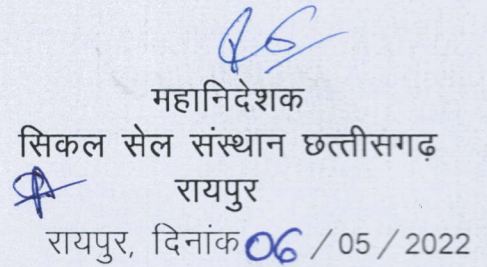 महानिदेशक
सिकल सेल संस्थान छत्तीसगढ़
रायपुर
रायपुर, दिनांक 06 / 05 / 2022